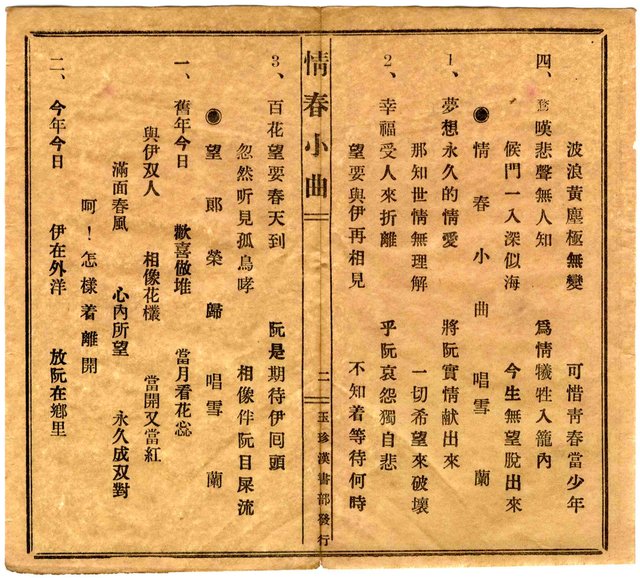 波浪黃塵極無變　可惜靑春當少年
四、驚嘆悲聲無人知　爲情犧牲入籠內
候門一入深似海　今生無望脫出來
◉情春小曲　唱雪蘭
1、夢想永久的情愛　將阮實情献出來
那知世情無理解　一切希望來破壞
2、幸福受人來折離　乎阮哀怨獨自悲
望要與伊再相見　不知着等待何時
情春小曲　二　玉珍漢書部發行
3、百花望要春天到　阮是期待伊囘頭
忽然听見孤鳥哮　相像伴阮目屎流
◉望郎榮歸　唱雪蘭
一、舊年今日　歡喜做堆　當月看花蕊
與伊双人　相像花欉　當開又當紅
滿面春風　心內所望　永久成双對
呵！怎樣着離開
二、今年今日　伊在外洋　放阮在鄉里